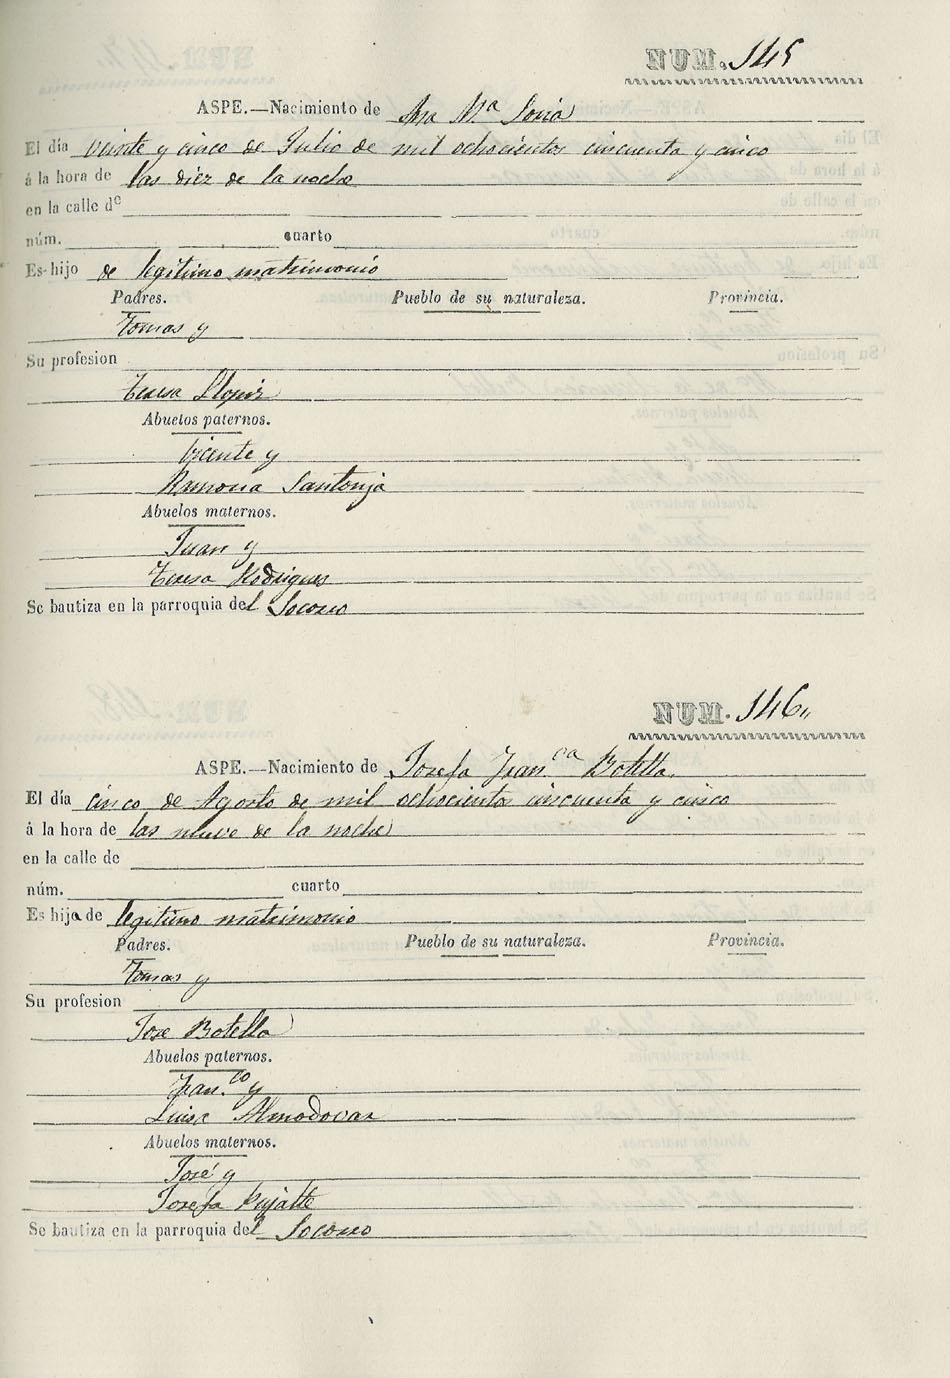 NUM. 145
ASPE.—Nacimiento de Ana Mª Soria
El día veinte y cinco de Julio de mil ochocientos cincuenta y cinco
á la hora de las diez de la noche
en la calle de
núm. cuarto
Es hijo de legitimo matrimonio
Padres. Pueblo de su naturaleza. Provincia.
Tomas y
Su profesion
Teresa Llopis
Abuelos paternos.
Vicente y
Ramona Santonja
Abuelos maternos.
Juan y
Teresa Rodrigues
Se bautiza en la parroquia del Socorro
NUM. 146
ASPE.—Nacimiento de Josefa Franca Botella
El día cinco de Agosto de mil ochocientos cincuenta y cinco
á la hora de las nueve de la noche
en la calle de
núm. cuarto
Es hija de legitimo matrimonio
Padres. Pueblo de su naturaleza. Provincia.
Tomas y
Su profesion
Jose Botella
Abuelos paternos.
Fran.co y
Luisa Almodovar
Abuelos maternos.
José y
Josefa Pujalte
Se bautiza en la parroquia del Socorro